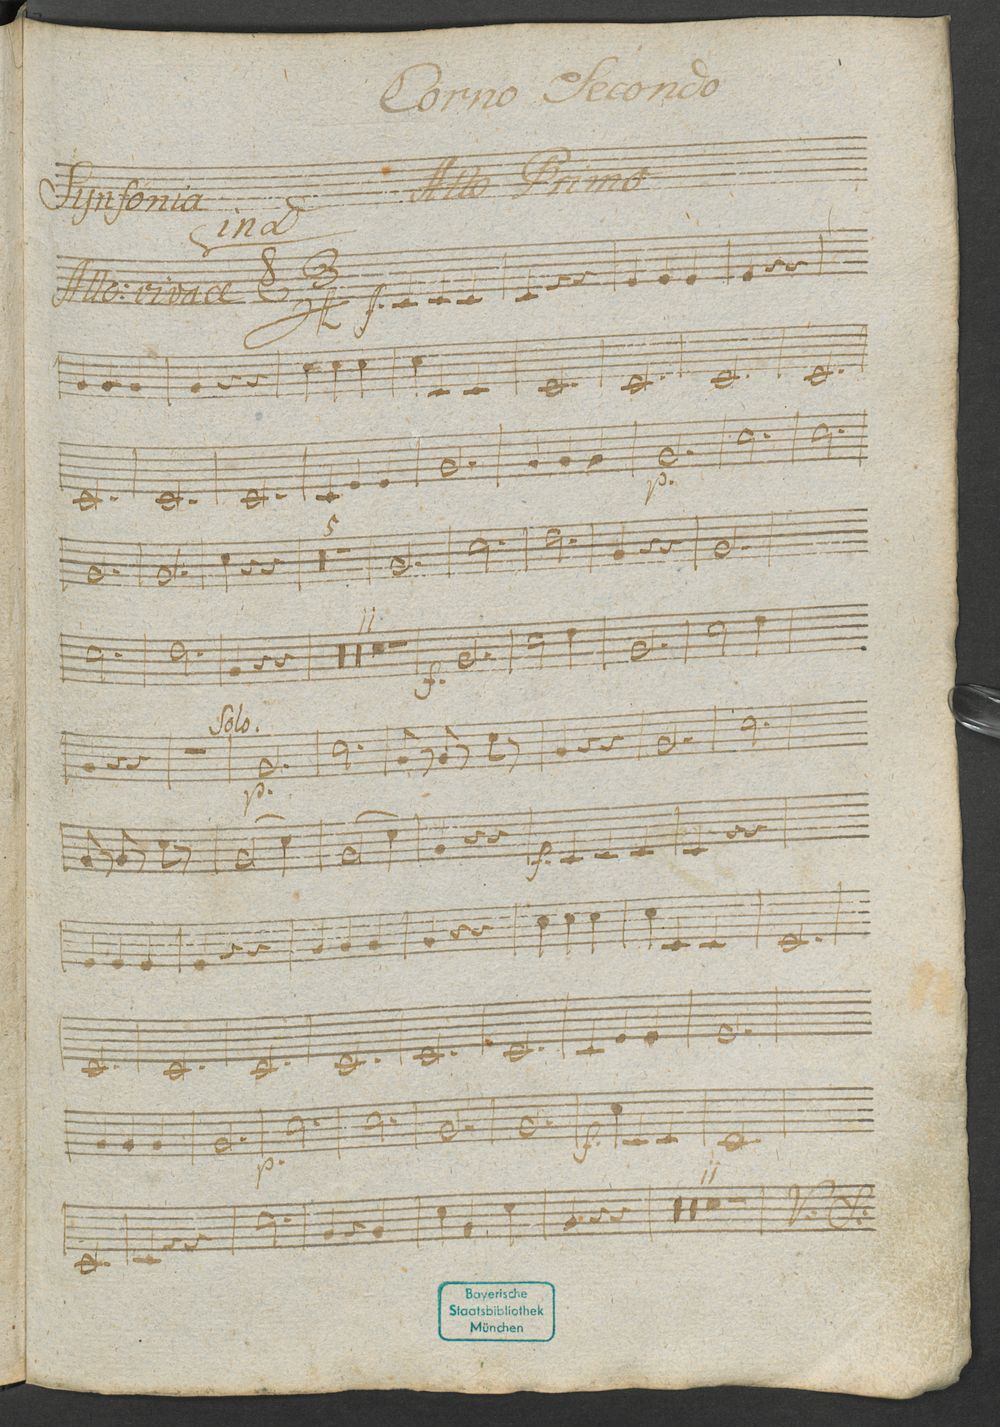 Corno Secondo
Synfonia Atto Primo
in d
Allo: vivace 3/4 f.
p.
5
11
f.
Solo.
p.
f.
p. f.
11
V. S.
Bayerische
Staatsbibliothek
München